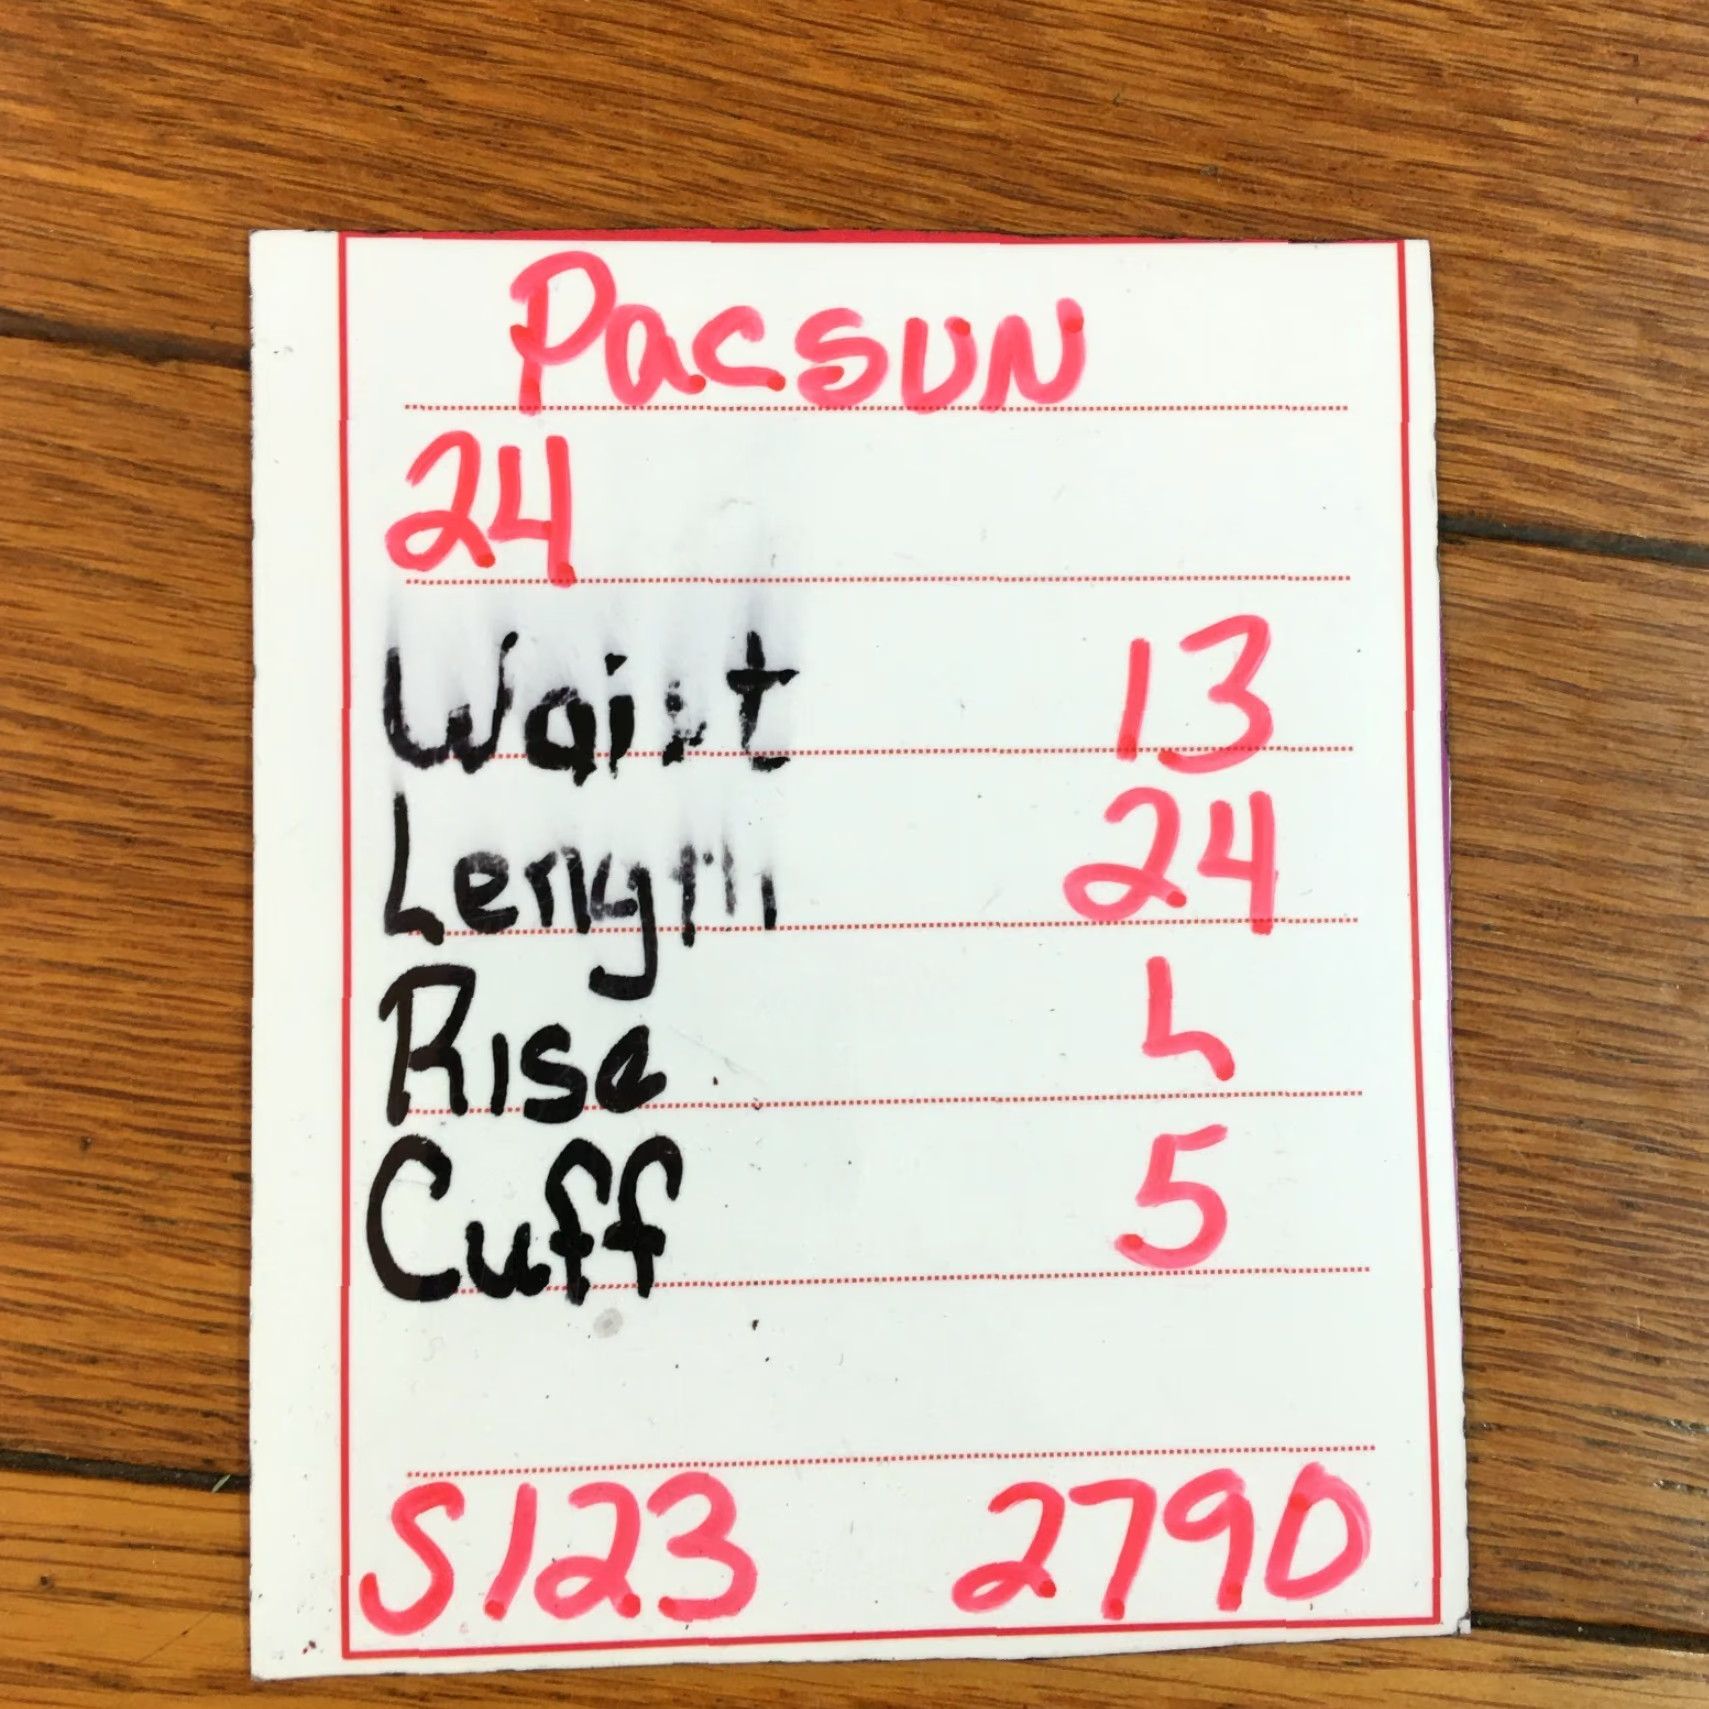 PacSUN
24
Waist 13
Length 24
Rise
Cuff 5
S123 2790